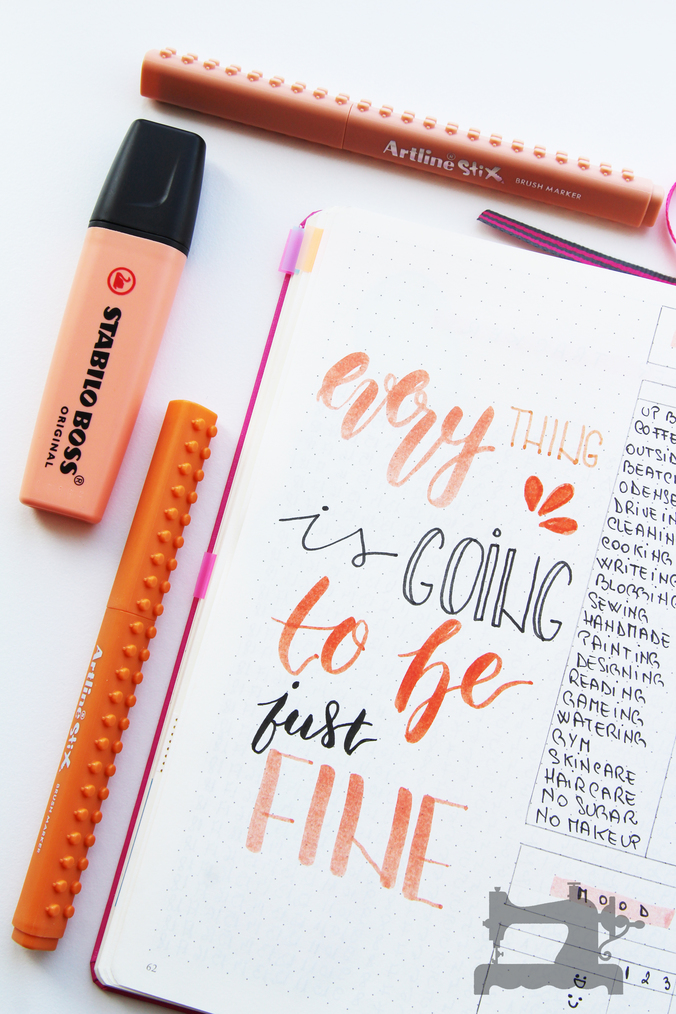 Artline StiX BRUSH MARKER
STABILO BOSS®
ORIGINAL
Artline StiX BRUSH MARKER
every THING
is GOING
to be
just
FINE
62
UP B
COFFE
OUTSID
BEATCH
ODENSE
DRIVE IN
CLEANIN
COOKING
WRITEING
BLOGGING
SEWING
HANDMADE
PAINTING
DESIGNING
READING
GAMEING
WATERING
GYM
SKINCARE
HAIRCARE
NO SUGAR
NO MAKEUP
MOOD
1 2 3